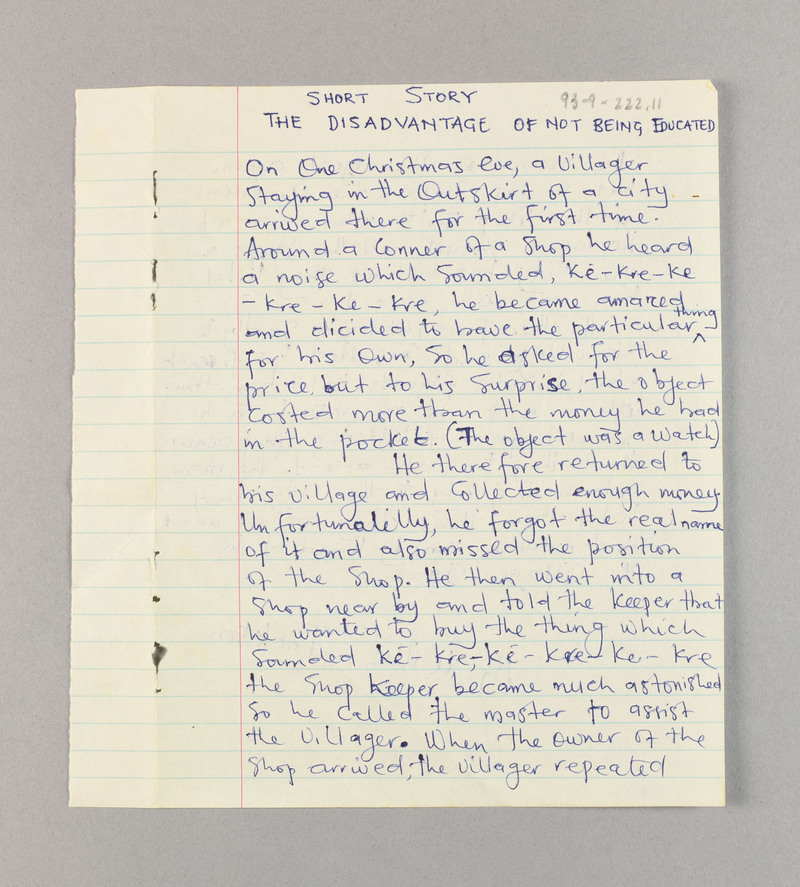 SHORT STORY
93-9-222,11
THE DISADVANTAGE OF NOT BEING EDUCATED
On One Christmas eve, a Villager
Staying in the Outskirt of a city
arrived there for the first time.
Around a Conner of a Shop he heard
a noise which Sounded, Ké-Kre-Ke
-Kre-Ke-Kre, he became amazed
and dicided to have the particular thing
for his Own, So he asked for the
price, but to his Surprise, the object
Costed more than the money he had
in the pocket. (The object was a Watch)
He therefore returned to
his village and Collected enough money.
Unfortunalilly, he forgot the real name
of it and also missed the position
of the Shop. He then went into a
Shop near by and told the Keeper that
he wanted to buy the thing which
Sounded Ké-Kre,-Ké-Kre-Ke-Kre
the Shop Keeper became much astonished
So he Called the master to assist
the Villager. When the Owner of the
Shop arrived, the Villager repeated